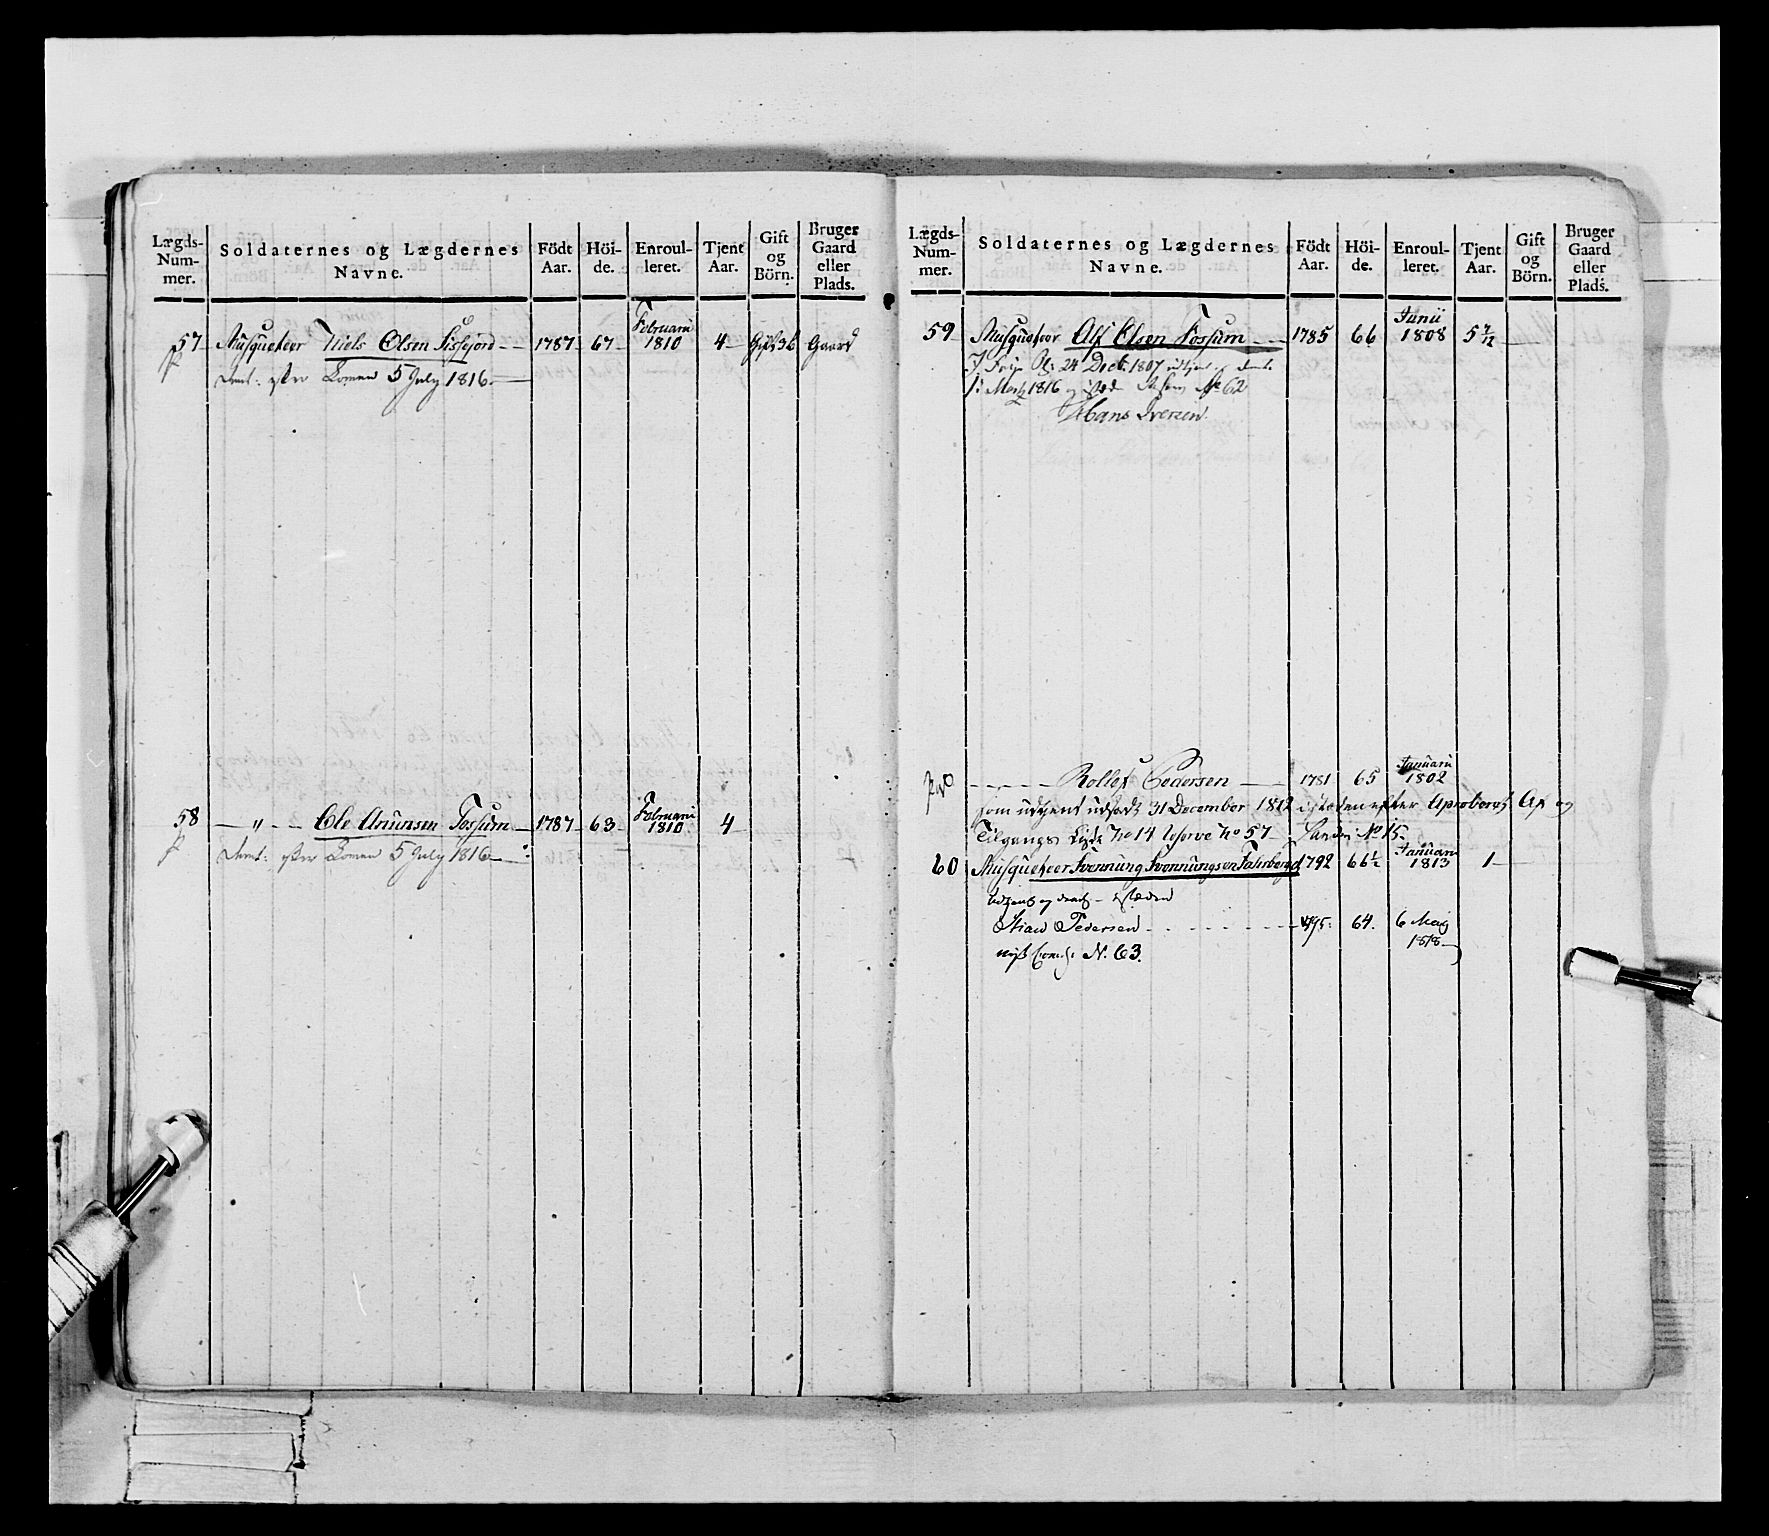 Lægds-Num-mer. Soldaternes og Lægdernes Navne. Födt Aar. Höi-de. Enroul-leret. Tjent Aar. Gift og Börn. Bruger Gaard eller Plads.
57 Musqueteer Niels Olsen 1787 67 Februarii 1810 4 Gift 3 b Gaard
efter 5 July 1816
58 — " — Ole Anunsen Fossum 1787 63 Februarii 1810 4
efter 5 July 1816
Lægds-Num-mer. Soldaternes og Lægdernes Navne. Födt Aar. Höi-de. Enroul-leret. Tjent Aar. Gift og Börn. Bruger Gaard eller Plads.
59 Musqueteer Alf Olsen Fossum 1785 66 Junii 1808 5 7/12
24 Dec: 1807
1816 No 62
Hans Iversen.
Rollef Pedersen 1781 65 Januarii 1802
som udtjent udsat 31 December 1812 isteden efter Aproberet Af og
Tilgangs Liste No 14 Reserve No 57 No 15
60 Musqueteer Svennung Svennungsen 1792 66½ Januarii 1813 1
og isteden
Pedersen 1795 64. 6 May 1818
N. 63.